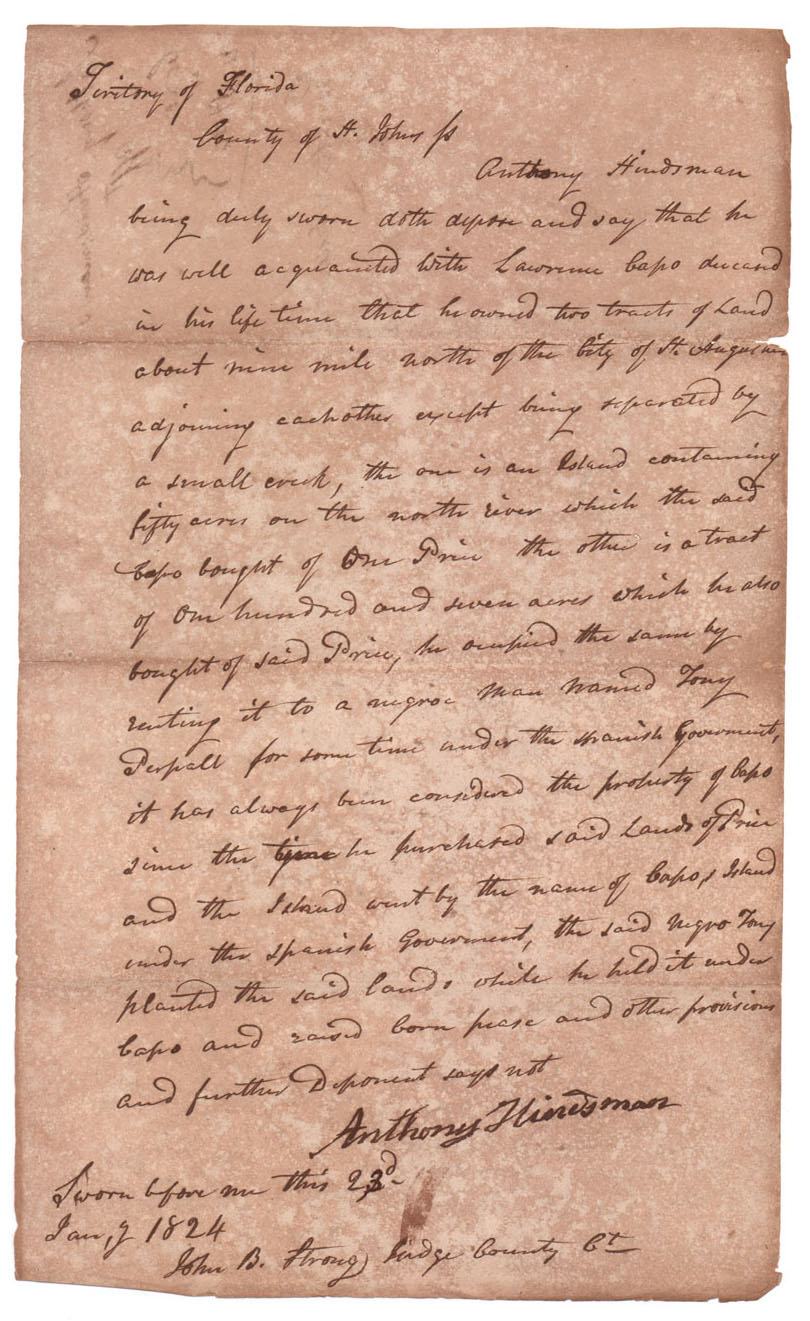 Teritory of Florida
County of St. Johns ss
Anthony Hindsman
being duly sworn doth depose and say, that he
was well acquainted with Lawrence Capo deceasd
in his life time that he owned two tracts of Land
about nine mile north of the City of St. Augustine
adjoining eachother except being separated by
a small creek, the one is an Island containing
fifty acres on the north river which the said
Capo bought of One Price the other is a tract
of One hundred and seven acres which he also
bought of said Price, he ocupied the same by
renting it to a negroe man named Tony
Perpall for some time under the spanish Goverment,
it has always been considered the property of Capo
since the time he purchased said Lands of Price
and the Island went by the name of Capo,s Island
under the spanish Goverment, the said negro Tony
planted the said lands while he held it under
Capo and raised Corn pease and other provisions
and further Deponent says not
Anthony Hindsman
Sworn before me this 23d
Jan,y 1824
John B. Strong Judge County Ct